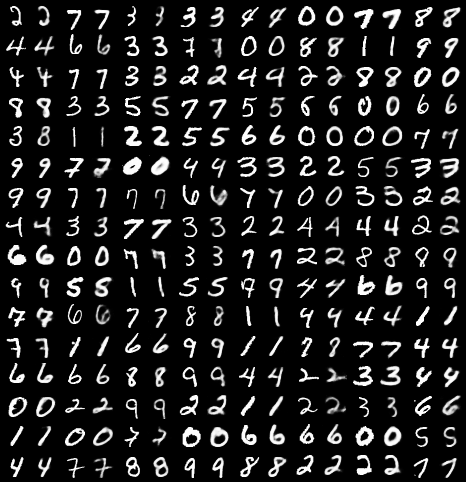 2 2 7 7 3 3 3 3 4 4 0 0 7 7 8 8
4 4 6 6 3 3 7 7 0 0 8 8 1 1 9 9
4 4 7 7 3 3 2 2 4 4 2 2 8 8 0 0
8 8 3 3 5 5 7 7 5 5 6 6 0 0 6 6
3 8 1 1 2 2 5 5 6 6 0 0 0 0 7 7
9 9 7 7 0 0 4 4 3 3 2 2 5 5 3 3
9 9 7 7 7 7 6 6 7 7 0 0 3 3 2 2
4 4 3 3 7 7 3 3 2 2 4 4 4 4 2 2
6 6 0 0 7 7 3 3 7 7 2 2 8 8 9 9
9 9 5 5 1 1 5 5 9 9 4 4 6 6 9 9
7 7 6 6 7 7 8 8 1 1 9 9 4 4 1 1
7 7 1 1 6 6 9 9 1 1 7 7 7 7 4 4
6 6 6 6 8 8 9 9 4 4 2 2 3 3 4 4
0 0 2 2 9 9 2 2 1 1 2 2 3 3 6 6
1 1 0 0 7 7 0 0 6 6 6 6 0 0 5 5
4 4 7 7 8 8 9 9 8 8 2 2 2 2 7 7